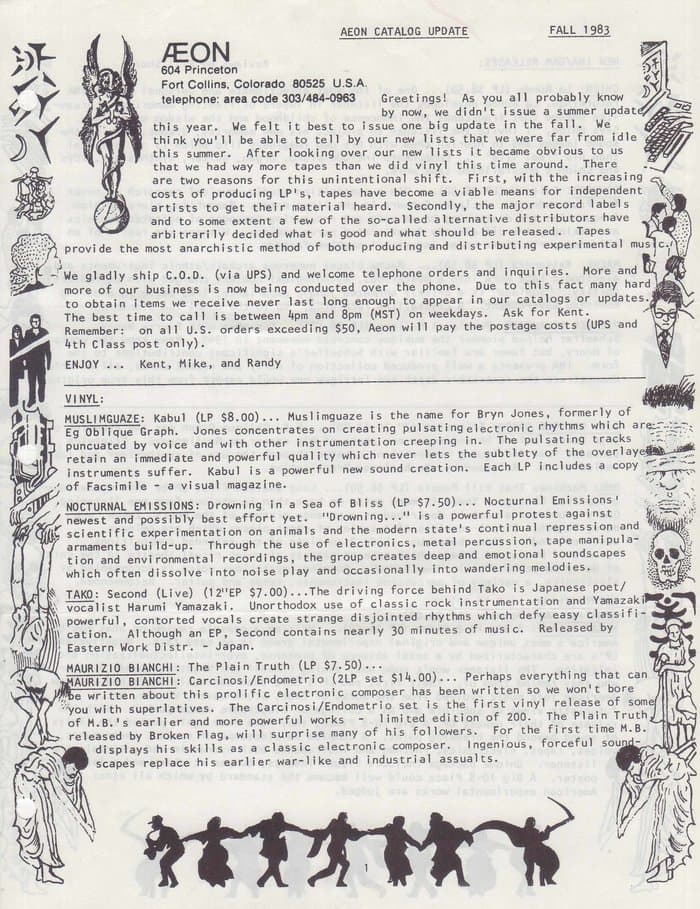 AEON CATALOG UPDATE FALL 1983
ÆON
604 Princeton
Fort Collins, Colorado 80525 U.S.A.
telephone: area code 303/484-0963
Greetings! As you all probably know
by now, we didn't issue a summer update
this year. We felt it best to issue one big update in the fall. We
think you'll be able to tell by our new lists that we were far from idle
this summer. After looking over our new lists it became obvious to us
that we had way more tapes than we did vinyl this time around. There
are two reasons for this unintentional shift. First, with the increasing
costs of producing LP's, tapes have become a viable means for independent
artists to get their material heard. Secondly, the major record labels
and to some extent a few of the so-called alternative distributors have
arbitrarily decided what is good and what should be released. Tapes
provide the most anarchistic method of both producing and distributing experimental music.
We gladly ship C.O.D. (via UPS) and welcome telephone orders and inquiries. More and
more of our business is now being conducted over the phone. Due to this fact many hard
to obtain items we receive never last long enough to appear in our catalogs or updates.
The best time to call is between 4pm and 8pm (MST) on weekdays. Ask for Kent.
Remember: on all U.S. orders exceeding $50, Aeon will pay the postage costs (UPS and
4th Class post only).
ENJOY ... Kent, Mike, and Randy
VINYL:
MUSLIMGUAZE: Kabul (LP $8.00)... Muslimguaze is the name for Bryn Jones, formerly of
Eg Oblique Graph. Jones concentrates on creating pulsating electronic rhythms which are
puncuated by voice and with other instrumentation creeping in. The pulsating tracks
retain an immediate and powerful quality which never lets the subtlety of the overlayed
instruments suffer. Kabul is a powerful new sound creation. Each LP includes a copy
of Facsimile - a visual magazine.
NOCTURNAL EMISSIONS: Drowning in a Sea of Bliss (LP $7.50)... Nocturnal Emissions'
newest and possibly best effort yet. "Drowning..." is a powerful protest against
scientific experimentation on animals and the modern state's continual repression and
armaments build-up. Through the use of electronics, metal percussion, tape manipula-
tion and environmental recordings, the group creates deep and emotional soundscapes
which often dissolve into noise play and occasionally into wandering melodies.
TAKO: Second (Live) (12"EP $7.00)...The driving force behind Tako is Japanese poet/
vocalist Harumi Yamazaki. Unorthodox use of classic rock instrumentation and Yamazaki
powerful, contorted vocals create strange disjointed rhythms which defy easy classifi-
cation. Although an EP, Second contains nearly 30 minutes of music. Released by
Eastern Work Distr. - Japan.
MAURIZIO BIANCHI: The Plain Truth (LP $7.50)...
MAURIZIO BIANCHI: Carcinosi/Endometrio (2LP set $14.00)... Perhaps everything that can
be written about this prolific electronic composer has been written so we won't bore
you with superlatives. The Carcinosi/Endometrio set is the first vinyl release of some
of M.B.'s earlier and more powerful works - limited edition of 200. The Plain Truth
released by Broken Flag, will surprise many of his followers. For the first time M.B.
displays his skills as a classic electronic composer. Ingenious, forceful sound-
scapes replace his earlier war-like and industrial assualts.
1